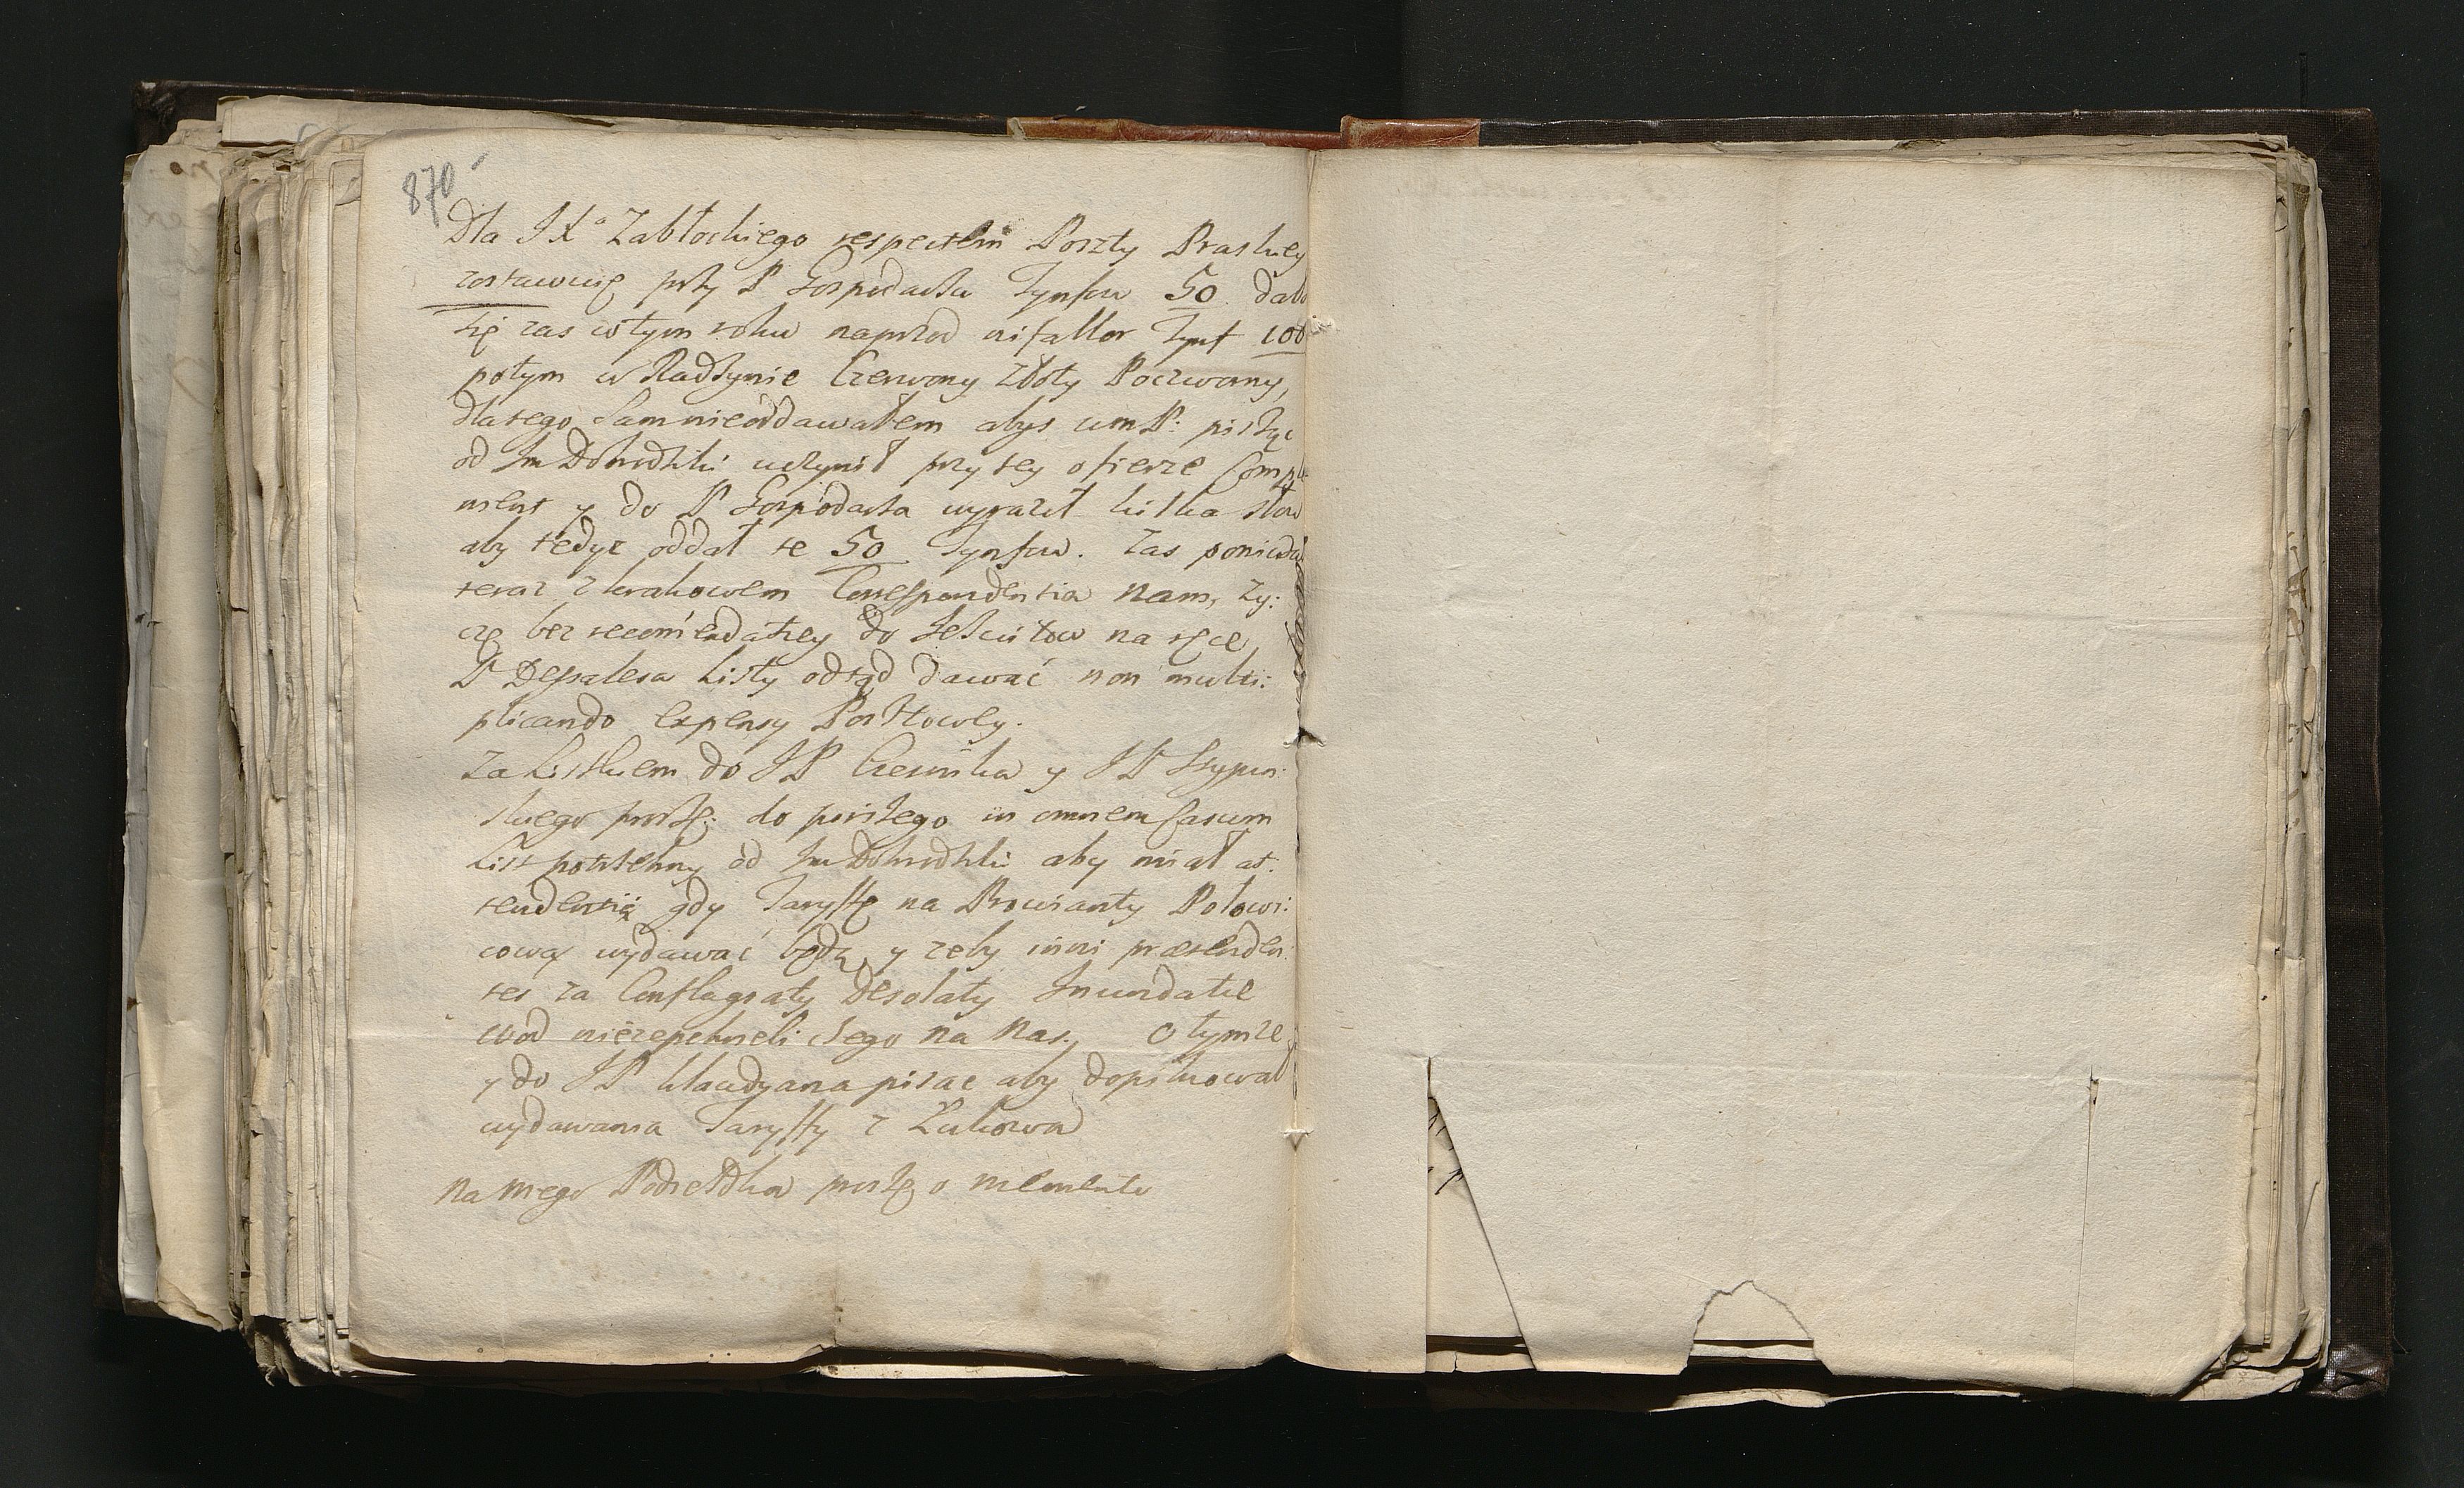 870
Dla JXo Zabłockiego respectem Poszty Pruskiey
zostawuię przy P Gospodarzu Tynfow 50. dało
się zas w tym roku naprzod ni fallor Tynf 100
potym w Radzynie Czerwony Złoty Poczwony,
dlatego Sam nieoddawałem abys wmP: pisząc
od Im Dobrodziki uczynił przy tey ofierze Compli
ment y do P Gospodarza wyraził kilka słow
aby tedyz oddał te 50 Tynfow. Zas poniewaz
teraz z krakowem Correspondentia nam, Zy:
czę bez recomendatiey do Jesuitow na ręce
P Depalesa Listy odtąd dawać non multi:
plicando Expensy Posztowey.
Za Listkiem do JP Czesnika y JP
skiego proszę: do pirszego in omnem Casum
List potrzebny od Im Dobrodziki aby miał at:
tendentią gdy Taryffę na Prowianty Połowi:
cową wydawać będą, y zeby inni praetenden:
tes za Conflagraty Desolaty Inundatie
wod niezepchneli czego na Nas, O tymze
y do JP Klaudyana pisac aby dopilnował
wydawania Taryffy z Łukowa
na mego Podrzedka proszę o memento